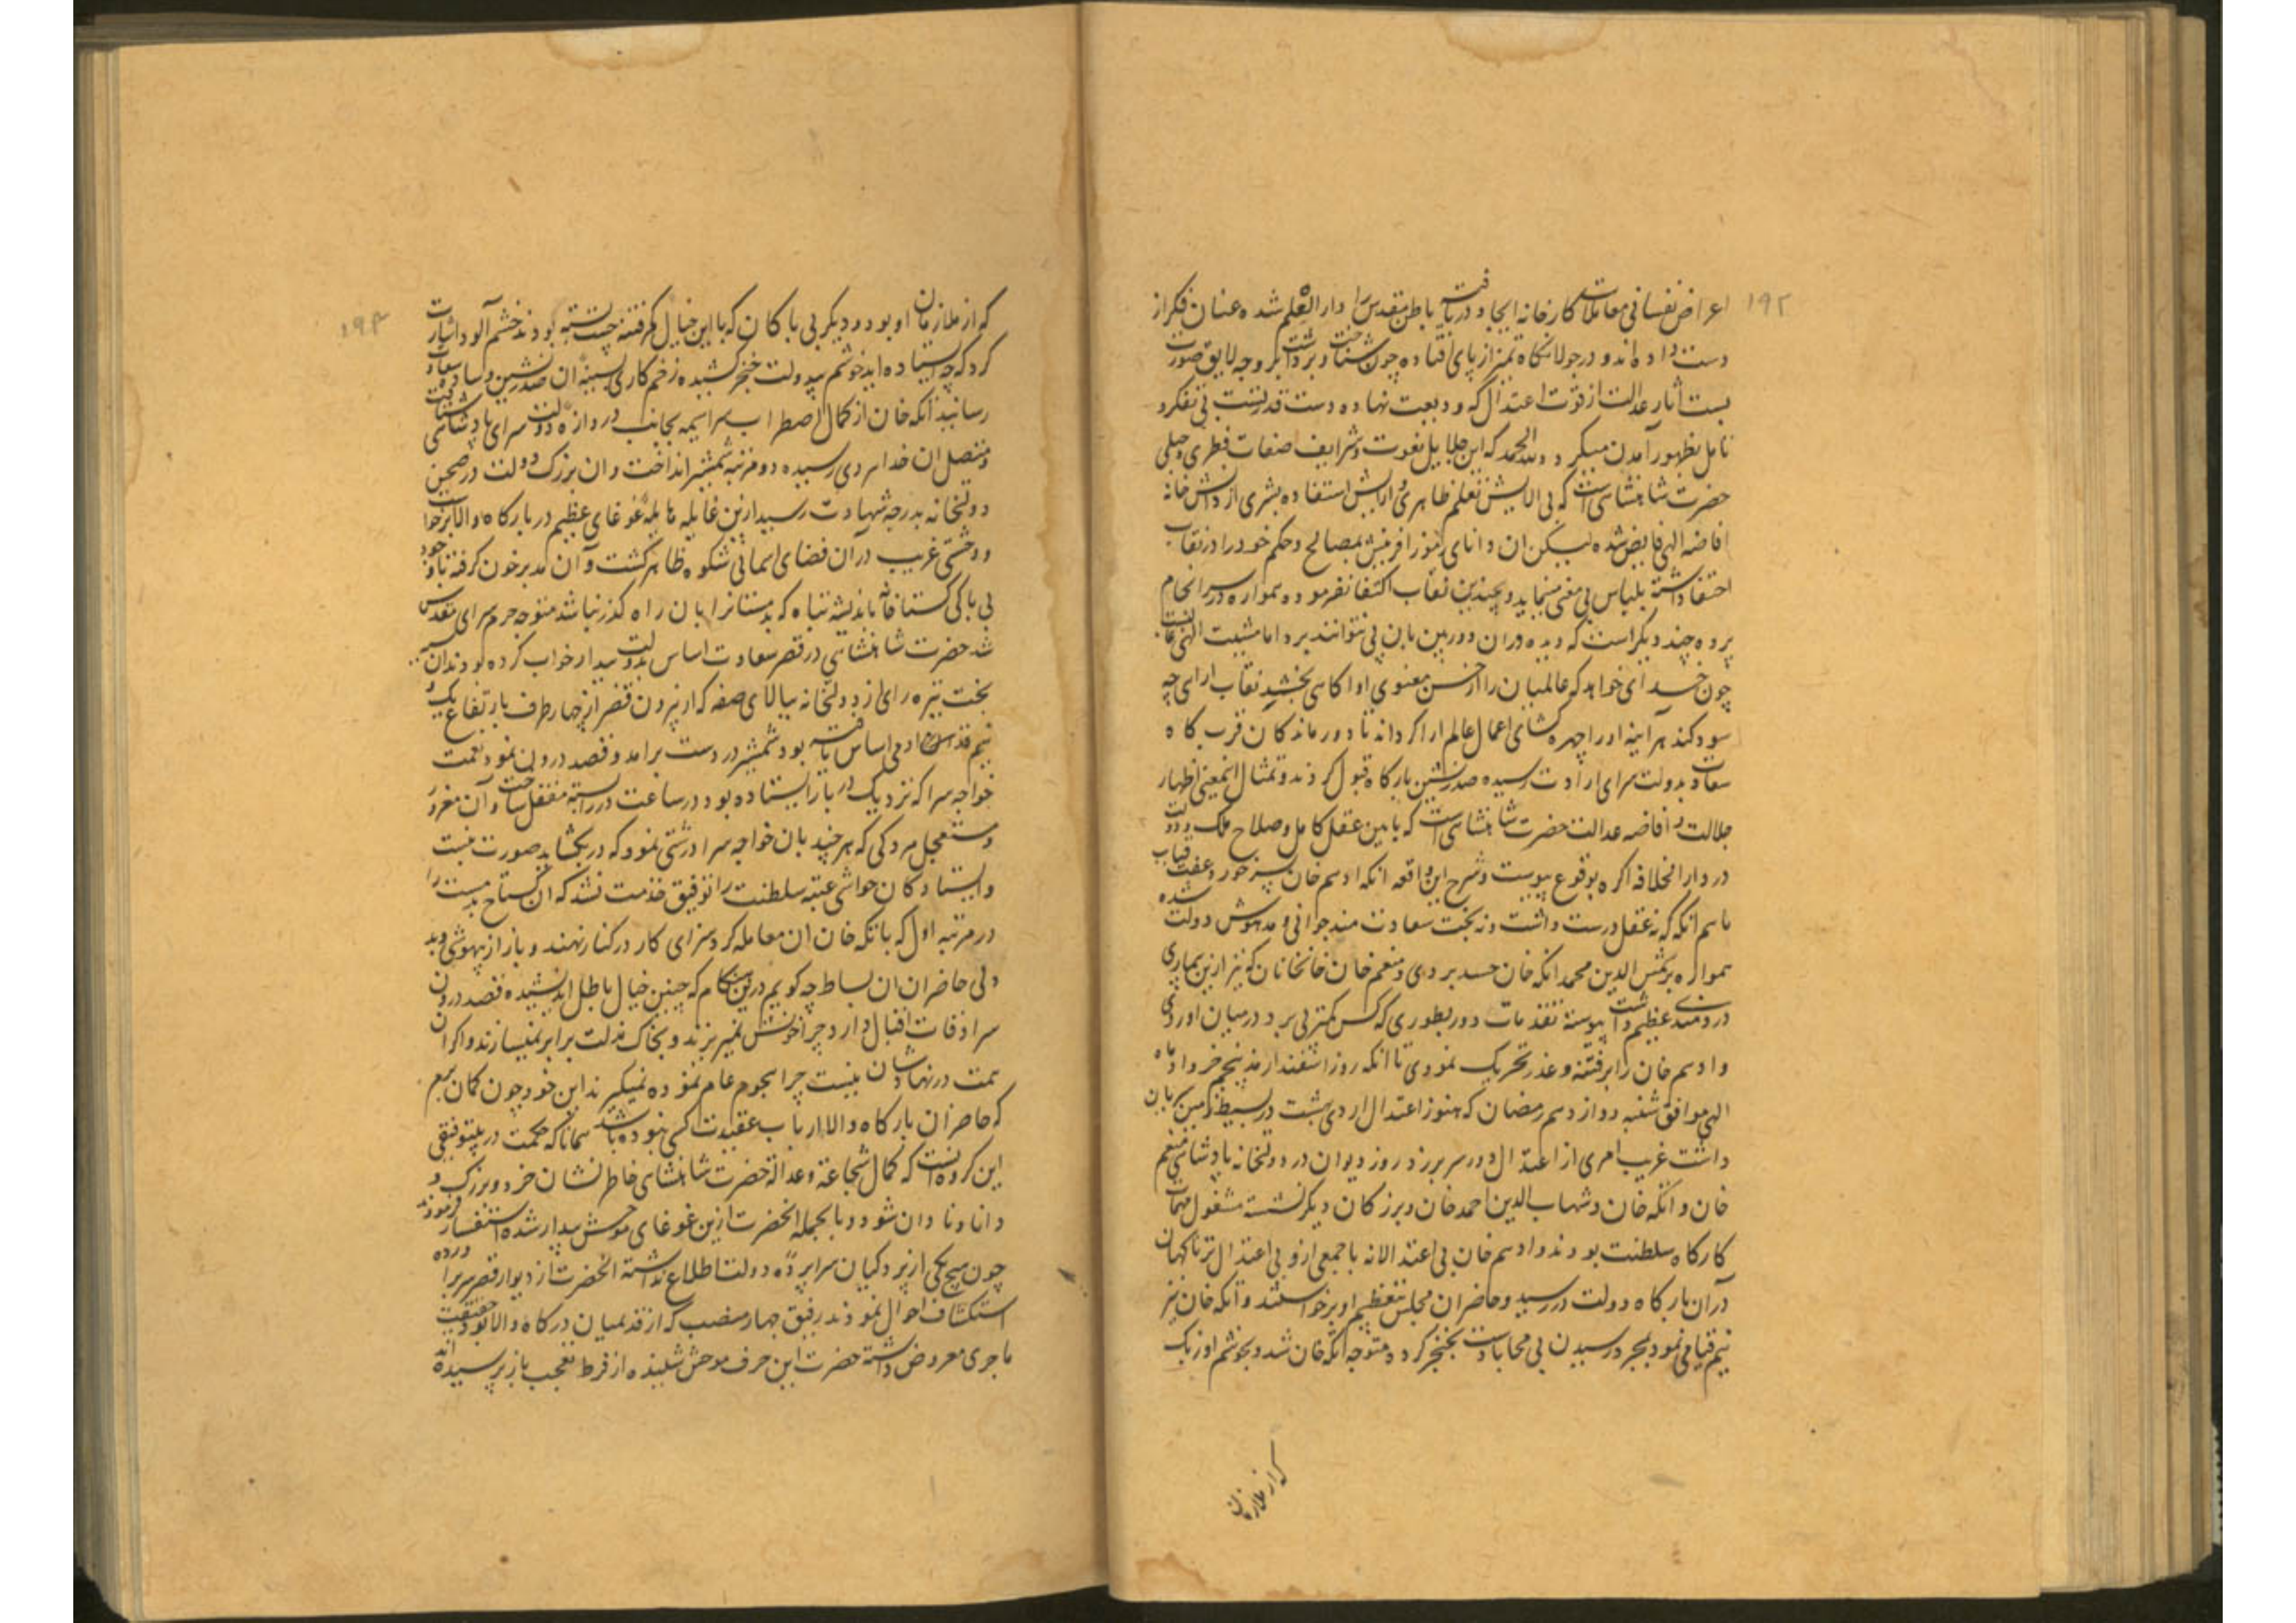 ۱۹۲
اعراض نفسانی معاملات کارخانه ایجاد دریافت باطن مقدس را دار العلم شده عنان فکر از
دست داده اند و در جولانگاه تمیز از پای افتاده چون شناخت و برداشت بر وجه لایق صورت
بست آثار عدالت از قوت اعتدال که ودیعت نهاده دست قدرتست بی تفکر و
تامل بظهور آمدن میگیرد و لله الحمد که این جلایل نعوت و شرایف صفات فطری و جبلی
حضرت شاهنشاهی است که بی الایش تعلم ظاهری و ارایش استفاده بشری از دانش خانه
افاضه الهی فایض شده لیکن ان دانای رموز افرینش بمصالح و حکم خود را در نقاب
اختفا داشته بلباس بی مغی مینماید و بچندین نقاب اکتفا نفرموده همواره در سرانجام
پرده چند دیگر است که دیده وران دوربین بان پی نتوانند برد اما مشیت الهی غالبست
چون خدای خواهد که عالمیان را از حسن معنوی او اکاهی بخشد نقاب ارای چه
سود کند هر آینه او را چهره کشای اعمال عالم ارا کرداند تا دور ماندکان قرب کاه
سعادت بدولت سرای ارادت رسیده صدرنشین بارکاه قبول کردند و تمثال اینمعنی اظهار
جلالت و افاضه عدالت حضرت شاهنشاهی است که بامین عقل کامل و صلاح ملک و دولت
در دار الخلافه اکره بوقوع پیوست و شرح این واقعه انکه ادهم خان پسر خورد عفت قباب
ماهم انکه که نه عقل درست داشت و نه بخت سعادت مند جوانی و مدهوش دولت شده
همواره بر شمس الدین محمد اتکه خان حسد بردی و منعم خان خانخانان که نیز ازین بیماری
دردمندی عظیم داشت پیوسته تقدمات دور بطوری که کس کمتر پی برد در میان اوردی
و ادهم خان را بر فتنه و غدر تحریک نمودی تا انکه روز اسفندارمذ پنجم خرداد ماه
الهی موافق شنبه دوازدهم رمضان که هنوز اعتدال اردی بهشت در بسیط زمین جریان
داشت غریب امری از اعتدال دور سر برزد روز دیوان در دولتخانه پادشاهی منعم
خان و اتکه خان و شهاب الدین احمد خان و بزرکان دیکر نشسته مشغول مهمات
کارکاه سلطنت بودند و ادهم خان بی اعتدالانه با جمعی از و بی اعتدال تر ناکهان
دران بارکاه دولت در رسید و حاضران مجلس بتعظیم او برخواستند و اتکه خان نیز
نیم قیامی نمود بمجرد رسیدن بی محابا دست بخنجر کرد و متوجه اتکه خان شد و بخوشم اوزبک
که از ملازمان
۱۹۳
که از ملازمان او بود و دیگر بی باکان که با این خیال کرفتنه چست بسته بودند خشم آلود اشارت
کرد که چه ایستاده اید خوشم بیدولت خنجر کشیده زخم کاری بسینه ان صدرنشین وساده سعادت
رسانید اتکه خان از کمال اضطراب سراسیمه بجانب دروازه دولت سرای پادشاهی شتافت
و متصل ان خدا بردی رسیده دو مرتبه شمشیر انداخت و ان بزرک دولت در صحن
دولتخانه بدرجه شهادت رسید ازین غایله هایله غوغای عظیم در بارکاه والا برخواست
و وحشتی غریب دران فضای اسمانی شکوه ظاهر کشت و آن مدبر خون کرفته با وجود
بی باکی کستاخانه باندیشه تباه که بدمستانرا بان راه کذر نباشد متوجه حرم سرای مقدس
شد حضرت شاهنشاهی در قصر سعادت اساس بدولت بیدار خواب کرده بودند ان
بخت تیره رای از دولتخانه ببالای صفه که از بیرون قصر از چهار طرف بارتفاع یک و
نیم قد ادمی اساس یافته بود شمشیر در دست برامد و قصد درون نمود نعمت
خواجه سرا که نزدیک در بار ایستاده بود در ساعت در را بسته مقفل ساخت و آن مغرور
مستعجل مردکی که هر چند بان خواجه سرا درشتی نمود که در بکشاید صورت نبست
و ایستادکان حواشی عتبه سلطنت را توفیق خدمت نشد که ان کستاخ مست را
در مرتبه اول که باتکه خان ان معامله کرد سزای کار در کنار نهند و باز از بیهوشی و بد
دلی حاضران ان بساط چه کویم درین هنکام که چنین خیال باطل اندیشیده قصد درون
سرادقات اقبال دارد چرا خونش نمیریزند و بخاک مذلت برابر نمیسازند و اکر ان
همت در نهادشان نیست چرا هجوم عام نموده نمیکیرند این خود چون کمان برم
که حاضران بارکاه والا ارباب عقیدت کسی نبوده باشد همانا که حکمت در بیتوفیقی
این کروه انست که کمال شجاعت و عدالت حضرت شاهنشاهی خاطر نشان خرد و بزرک و
دانا و نادان شود و بالجمله الحضرت ازین غوغای موحش بیدار شده استفسار فرمودند
چون هیچ یکی از پردکیان سراپرده دولت اطلاع نداشته الحضرت از دیوار قصر سر براورده
استکشاف احوال نمودند رفیق چهار منصب که از قدیمیان درکاه والا بود حقیقت
ماجری معروض داشته حضرت این حرف موحش شنیده از فرط تعجب باز پرسیده اند